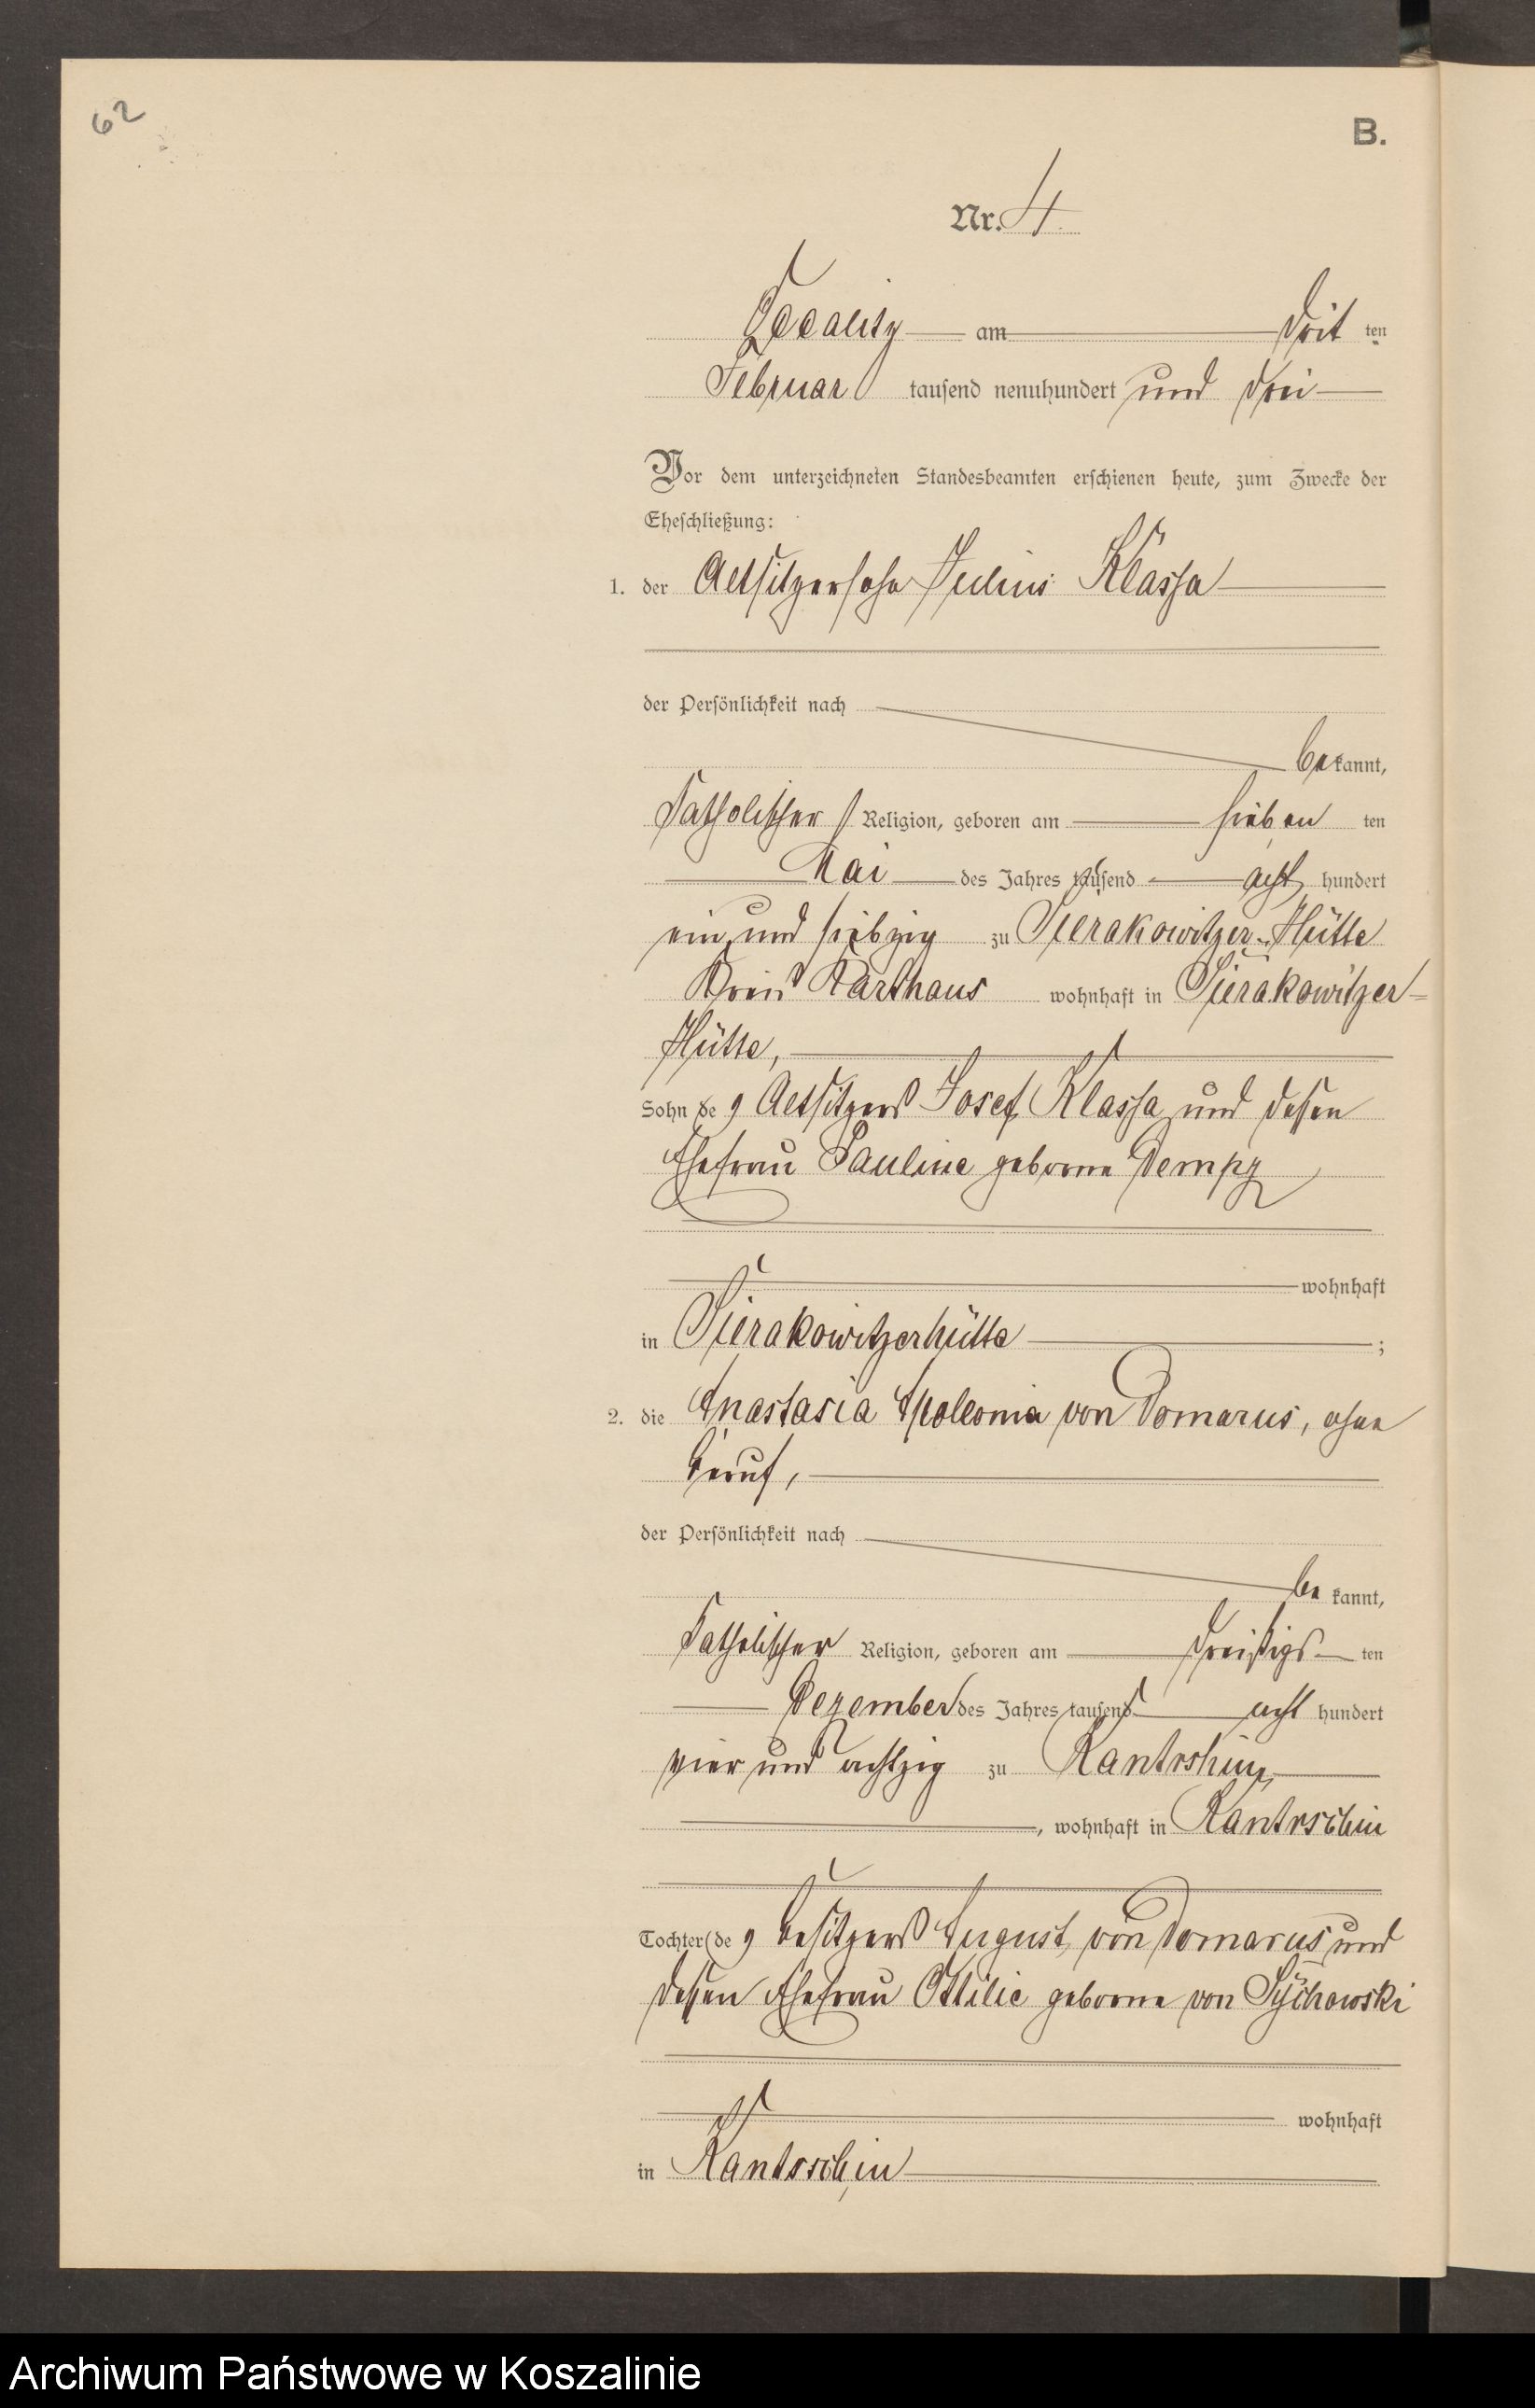 62
B.
Nr. 4
am Drit ten
Februar tausend neunhundert und drei
Vor dem unterzeichneten Standesbeamten erschienen heute, zum Zwecke der
Eheschließung:
1. der Altsitzersohn Julius Klassa
der Persönlichkeit nach
be kannt,
katholischer Religion, geboren am sieben ten
Mai des Jahres tausend acht hundert
ein und siebzig zu Sierakowitzer-Hütte
Kreis Karthaus wohnhaft in Sierakowitzer-
Hütte,
Sohn des Altsitzers Josef Klassa und dessen
Ehefrau Pauline geborne
wohnhaft
in Sierakowitzerhütte ;
2. die Anastasia Apolonia von Domarus, ohne
Beruf,
der Persönlichkeit nach
be kannt,
katholischer Religion, geboren am dreißigs ten
Dezember des Jahres tausend acht hundert
vier und achtzig zu Kantrshin,
, wohnhaft in Kantrschin
Tochter des Besitzers August von Domarus und
dessen Ehefrau Ottilie geborne von Sychowski
wohnhaft
in Kantrschin
Archiwum Państwowe w Koszalinie